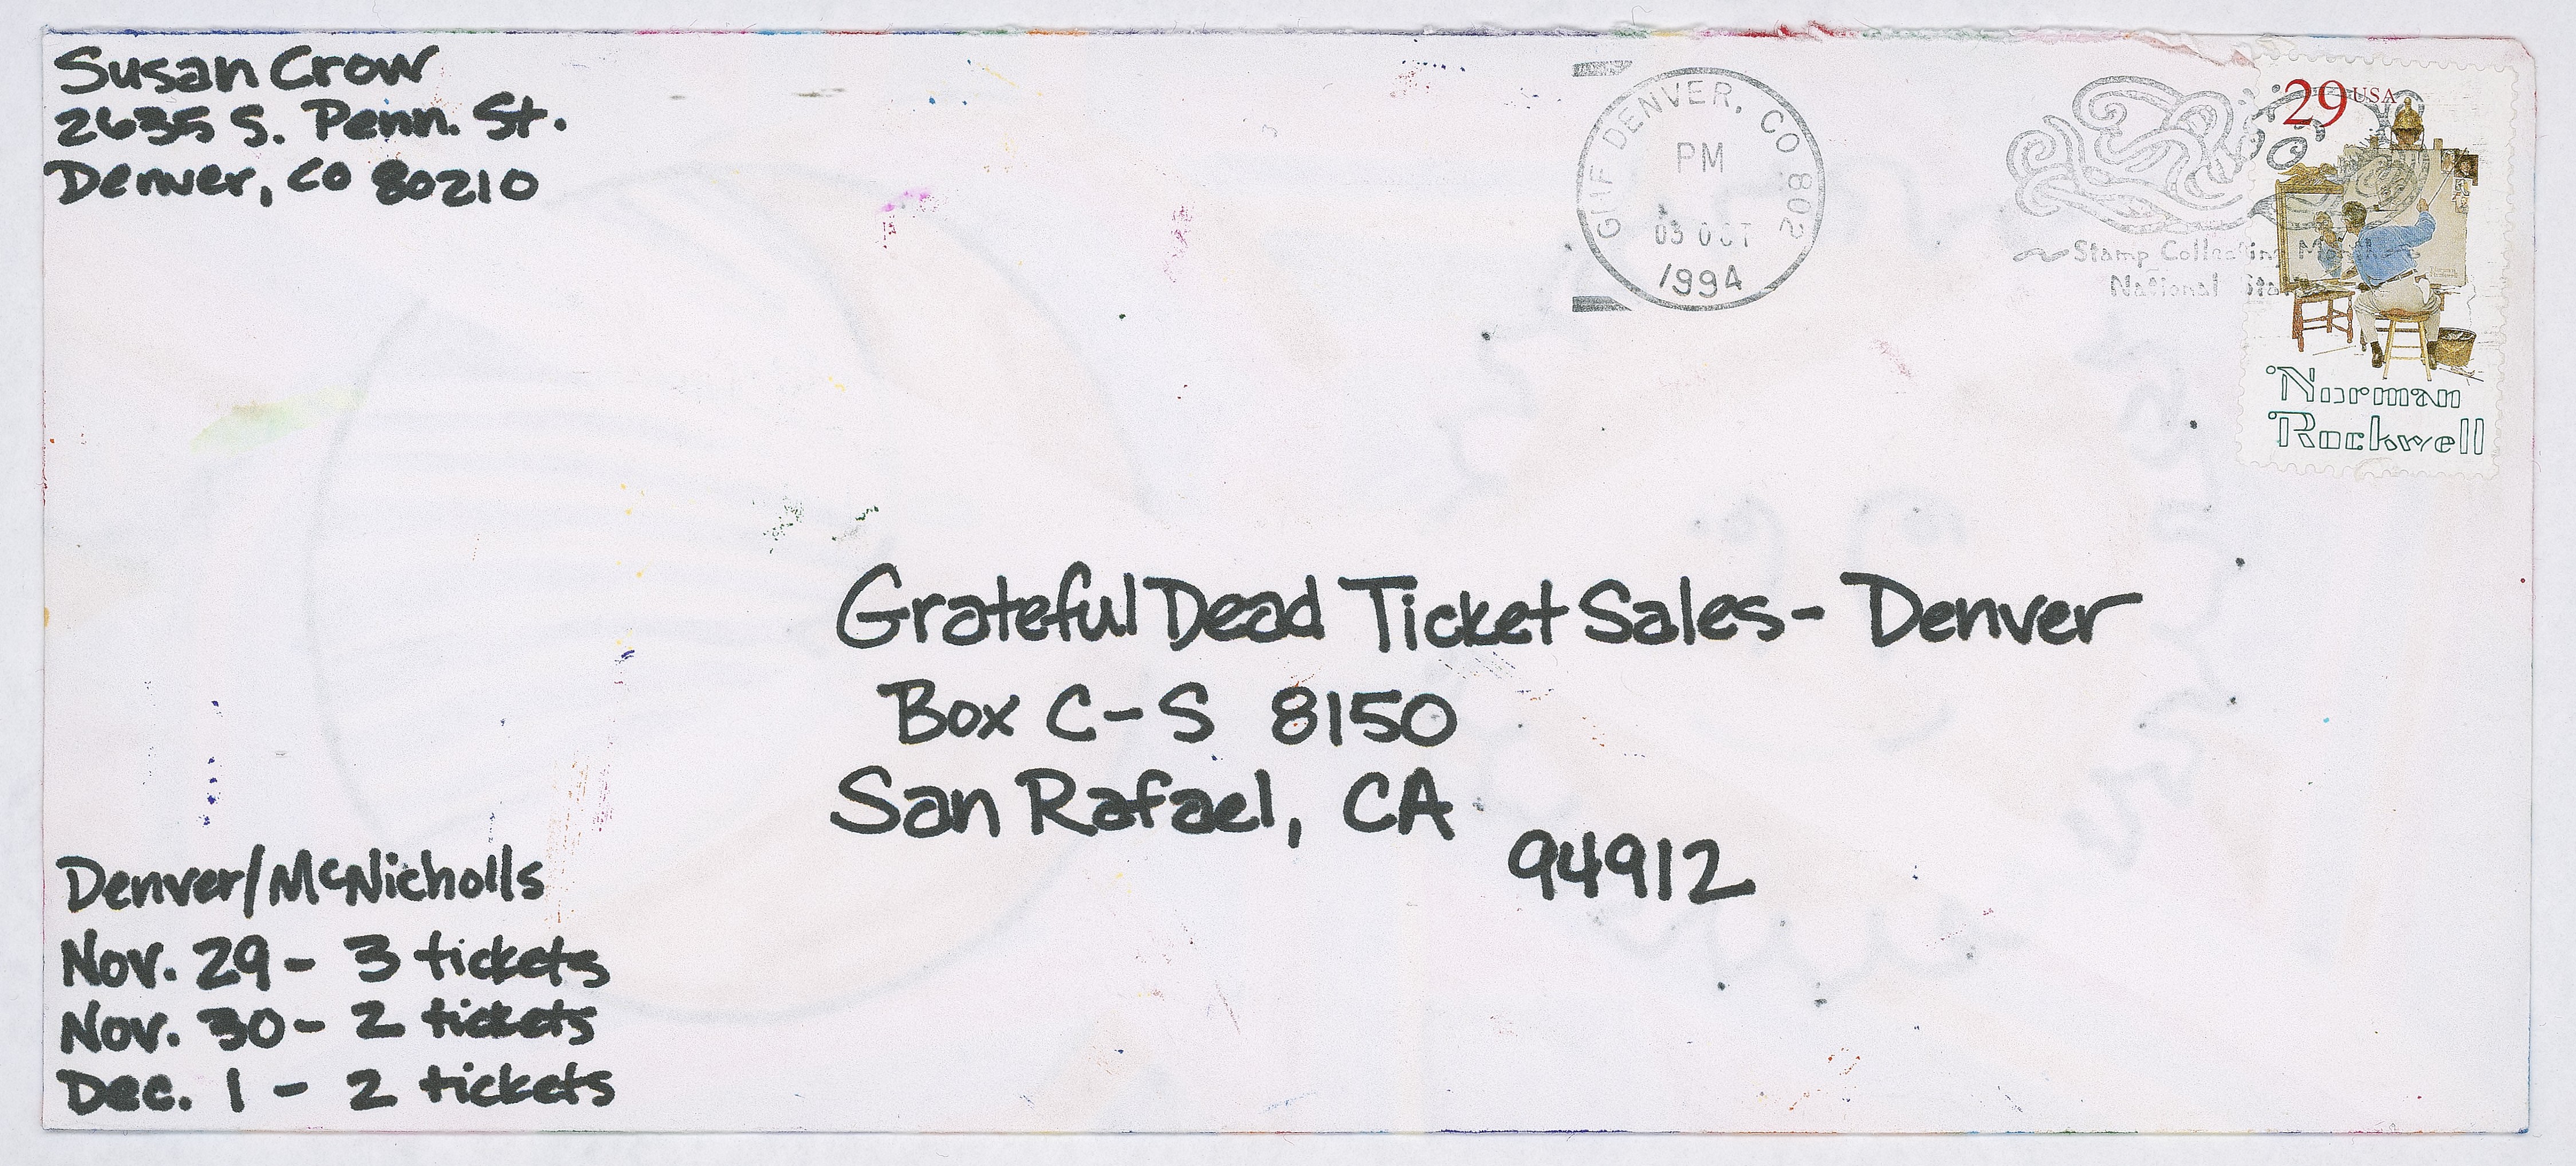 Susan Crow
2635 S. Penn. St.
Denver, CO 80210
GMF DENVER, CO 802
PM
03 OCT
1994
29 USA
Stamp Collecting Month
National
Norman
Rockwell
Grateful Dead Ticket Sales - Denver
Box C-S 8150
San Rafael, CA
94912
Denver/McNicholls
Nov. 29 - 3 tickets
Nov. 30 - 2 tickets
Dec. 1 - 2 tickets